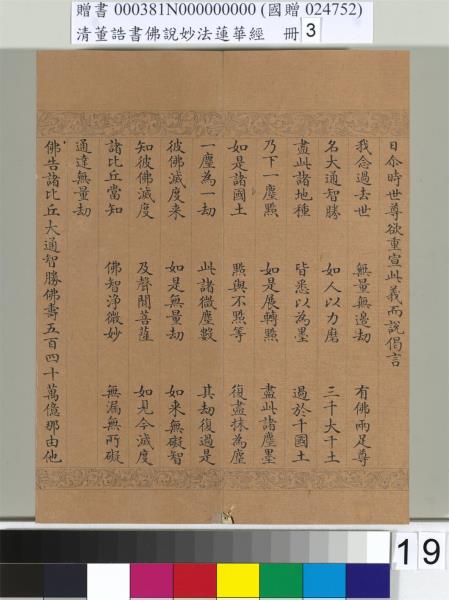 贈書 000381N000000000 (國贈 024752)
清董誥書佛說妙法蓮華經 冊 3
日尒時世尊欲重宣此義而說偈言
我念過去世 無量無邊劫 有佛兩足尊
名大通智勝 如人以力磨 三千大千土
盡此諸地種 皆悉以為墨 過於千國土
乃下一塵點 如是展轉點 盡此諸塵墨
如是諸國土 點與不點等 復盡抹為塵
一塵為一劫 此諸微塵數 其劫復過是
彼佛滅度来 如是無量劫 如来無礙智
知彼佛滅度 及聲聞菩薩 如見今滅度
諸比丘當知 佛智淨微妙 無漏無所礙
通達無量劫
佛告諸比丘大通智勝佛壽五百四十萬億那由他
19